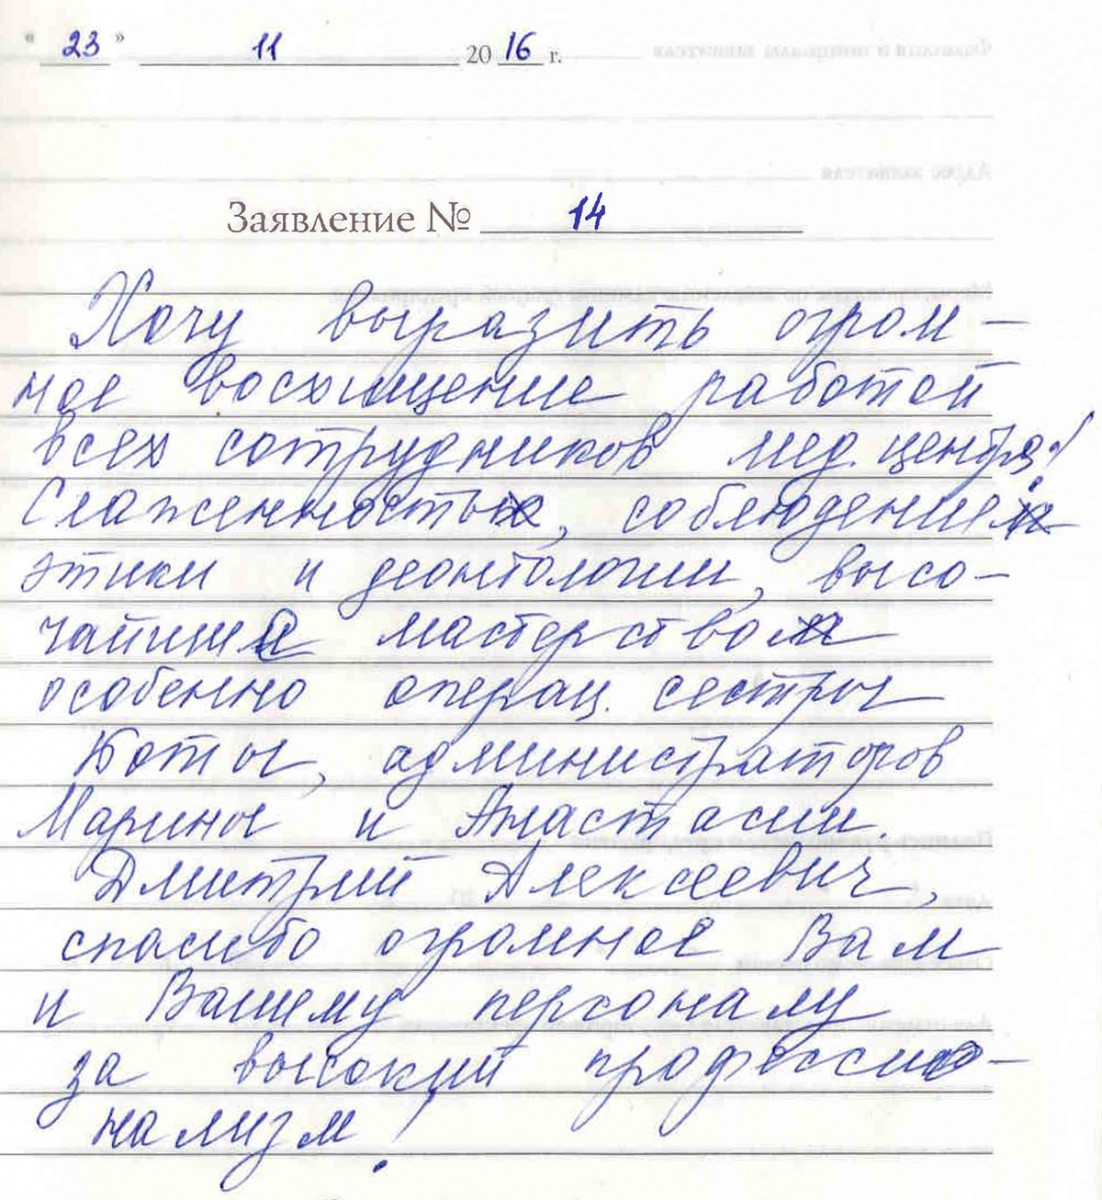 "23" 11 2016 г.
Заявление № 14
Хочу выразить огром-
ное восхищение работой
всех сотрудников мед. центра!
Слаженность, соблюдение
этики и деонтологии, высо-
чайше мастерство
особенно операц. сестры
Кати, администраторов
Марины и Анастасии.
Дмитрий Алексеевич,
спасибо огромное Вам
и Вашему персоналу
за высокий профессио-
нализм!